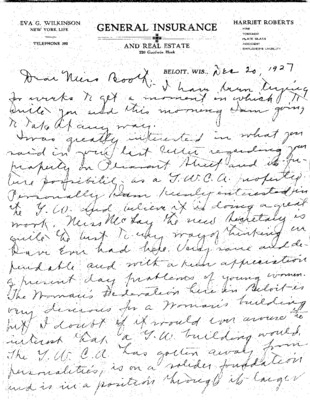 EVA G. WILKINSON
NEW YORK LIFE
TELEPHONE
GENERAL INSURANCE
AND REAL ESTATE
Goodwin Block
HARRIET ROBERTS
FIRE
TORNADO
PLATE GLASS
ACCIDENT
BELOIT, WIS., Dec 20, 1927
Dear Miss Booth: I have been trying
for weeks to get a moment in which to
write you and this morning I am going
to take it any way.
I was greatly interested in what you
said in your last letter regarding your
property on Pleasant Street and its fu-
ture possibility as a Y.W.C.A. property.
Personally I am keenly interested in
the Y.W. and believe it is doing a great
work. Miss McKay the new Secretary is
quite the best to my way of thinking we
have ever had here. Very sane and de-
pendable and with a keen appreciation
of present day problems of young women.
The Woman's Federation here in Beloit is
very desirous for a Woman's building
but I doubt if it would ever arouse the
interest that a Y.W. building would.
The Y.W.C.A. has gotten away from
personalities, is on a solider foundation
and is in a position through its larger